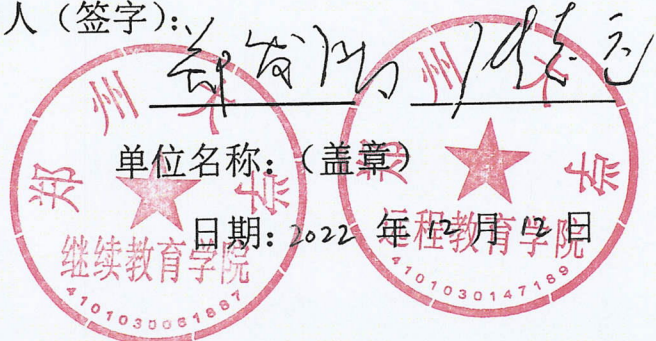 人（签字）：
单位名称：（盖章）
日期：2022 年 12 月 12 日
郑州大学
继续教育学院
4101030061887
郑州大学
远程教育学院
4101030147189